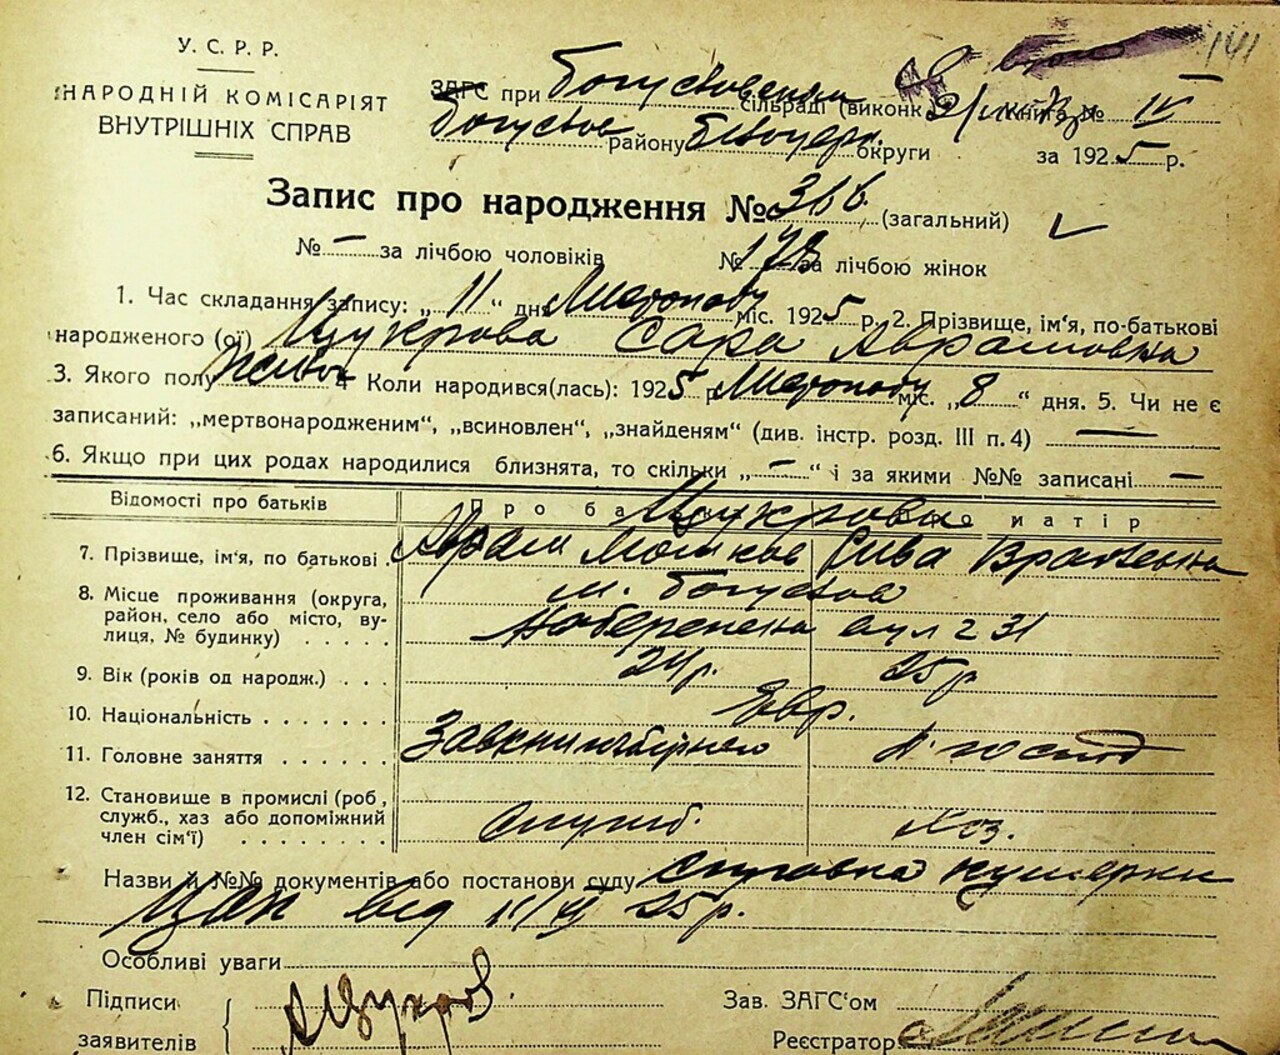 141
У. С. Р. Р.
НАРОДНІЙ КОМІСАРІЯТ
ВНУТРІШНІХ СПРАВ
ЗАГС при Богуславском сільраді (виконк Книга № IV
району округи за 1925 р.
Запис про народження № 366 (загальний)
№ – за лічбою чоловіків № 178 за лічбою жінок
1. Час складання запису: „11“ дня Листопаду міс. 1925 р. 2. Прізвище, ім'я, по-батькові
народженого (ої) Цукрова Сара Аврамовна
3. Якого полу жіноч 4. Коли народився(лась): 1925 р Листопаду міс. „8“ дня. 5. Чи не є
записаний: „мертвонародженим“, „всиновлен“, „знайденям“ (див. інстр. розд. III п. 4) —
6. Якщо при цих родах народилися близнята, то скільки „–“ і за якими №№ записані –
Відомості про батьків Про ба матір
Цукрови
7. Прізвище, ім'я, по батькові Аврам Мошков Рива
8. Місце проживання (округа, м. Богуслав
район, село або місто, ву-
лиця, № будинку) Набережна 31
9. Вік (років од народж.) 24 р. 25 р
10. Національність Євр.
11. Головне заняття
12. Становище в промислі (роб,
служб., хаз або допоміжний Служб. Хоз.
член сім'ї)
Назви й №№ документів або постанови суду справка кушерки
від 11/XI 25 р.
Особливі уваги
Підписи Зав. ЗАГС'ом
заявителів АЦукров Реєстратор